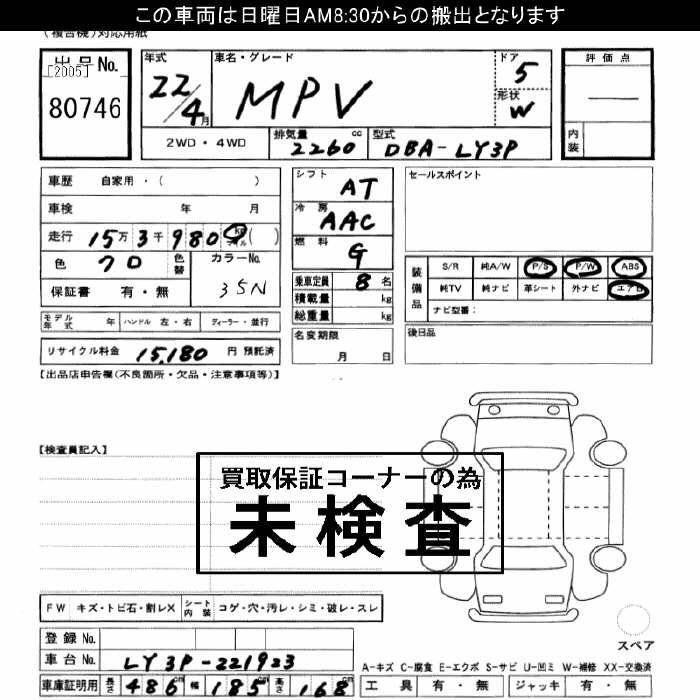 この車両は日曜日AM8:30からの搬出となります
(複合機)対応用紙
出品No.
[2005]
80746
年式
22/4月
車名・グレード
MPV
ドア
5
形状
W
評価点
内装
2WD・4WD
排気量
2260
cc
型式
DBA-LY3P
車歴 自家用・( )
車検 年 月
走行 15万3千980 km マイル ( )
色 クロ
色替
カラーNo.
35N
保証書 有・無
シフト
AT
冷房
AAC
燃料
G
乗車定員 8名
積載量 kg
総重量 kg
名変期限
月 日
セールスポイント
装備品
S/R 純A/W P/S P/W ABS
純TV 純ナビ 革シート 外ナビ エアB
ナビ型番:
後日品
モデル年式 年 ハンドル 左・右 ディーラー・並行
リサイクル料金 15,180 円 預託済
【出品店申告欄(不良箇所・欠品・注意事項等)】
【検査員記入】
買取保証コーナーの為
未検査
FW キズ・トビ石・割レX シート内装 コゲ・穴・汚レ・シミ・破レ・スレ
登録No.
車台No. LY3P-221923
車庫証明用 長さ 486cm 幅 185cm 高さ 168cm
スペア
A-キズ C-腐食 E-エクボ S-サビ U-凹ミ W-補修 XX-交換済
工具 有・無 ジャッキ 有・無